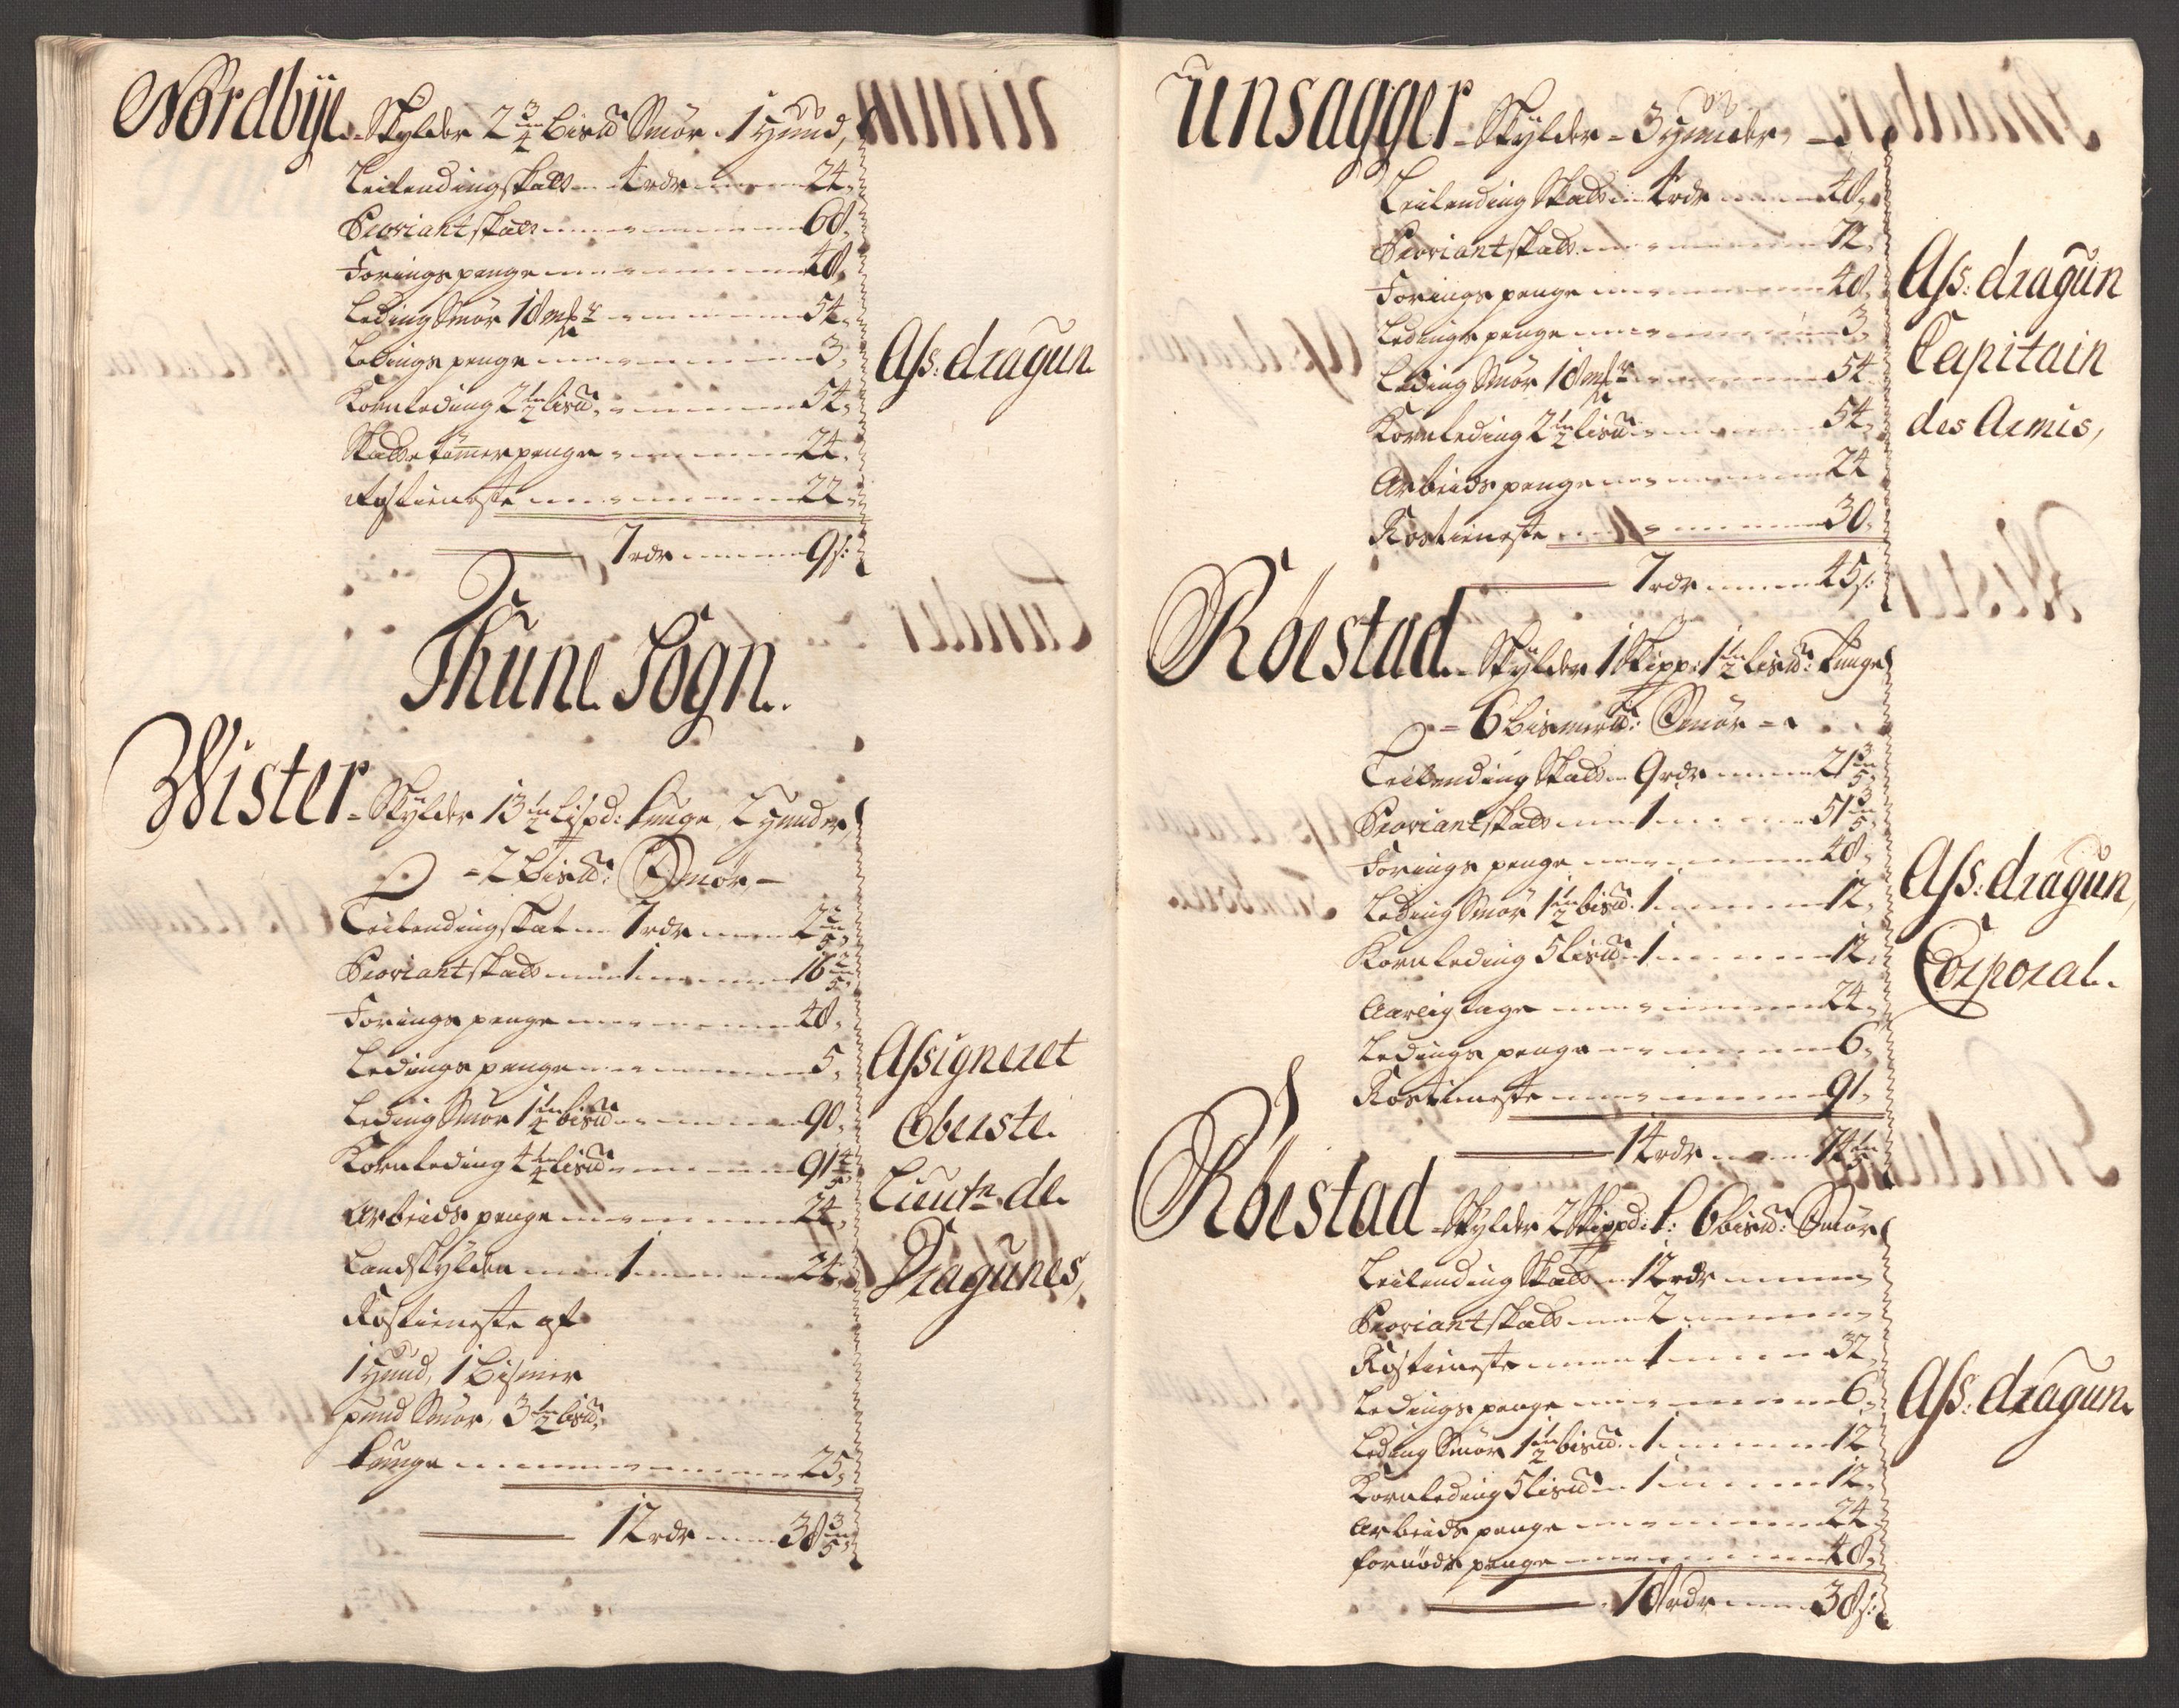 Nordbÿe Skylder 2 3/4 bis℔ Smør 1 Hund,
Leilendingskatt 4 rdr 24.
Proviantskatt 60.
Foringspenge 48.
Leding Smør 18 mk 54.
Ledingspenge 3.
Kornleding 2 1/2 lis℔ 54.
Skattetømmerpenge 24.
Rostieneste 22.
7 rdr 9 s:
Ass: dragun.
Thune Sogn.
Wister Skÿlder 13 1/2 lispd: tunge, 2 Hunder,
2 bis℔: Smør
Leilendingskat 7 rdr 2 2/5.
Proviantskatt 1 16 2/5.
Foringspenge 48.
Ledingspenge 5.
Leding Smør 1 1/4 bis℔ 90.
Kornleding 4 1/2 lis℔ 91 4/5.
Arbeidspenge 24.
Landskÿlden 1 24.
Rostieneste af
1 Hund, 1 Bismer
pund Smør, 3 1/2 lis℔
tunge 25.
12 rdr 38 3/5.
Assigneret
Oberste
Lieutn de
Dragunes,
Unsagger Skÿlder 3 Hunder,
Leilending Skatt 4 rdr 48.
Proviantskatt 72.
Foringspenge 48.
Ledingspenge 3.
Leding Smør 18 mk 54.
Kornleding 2 1/2 lis℔ 54.
Arbeidspenge 24
Rostieneste 30.
7 rdr 45 s:
Ass: dragun
Capitain
des Armis,
Röestad Skÿlder 1 Skipp: 1 1/2 lis℔: tunge
6 bismer℔: Smør
Leilending Skatt 9 rdr 21 3/5.
Proviantskatt 1 51 3/5.
Foringspenge 48.
Leding Smør 1 1/2 bis℔ 1 12.
Kornleding 5 lis℔ 1 12.
Aarligtage 24.
Ledingspenge 6.
Rostieneste 91.
14 rdr 74 1/5
Ass: dragun,
Corporal.
Röestad Skÿlder 2 Skippd: t: 6 bis℔: Smør
Leilending Skatt 12 rdr
Proviantskatt 2
Rostieneste 1 32.
Ledingspenge 6.
Leding Smør 1 1/2 bis℔ 1 12
Kornleding 5 lis℔ 1 12.
Arbeidspenge 24
fornødspenge 48.
18 rdr 38 s:
Ass: dragun.